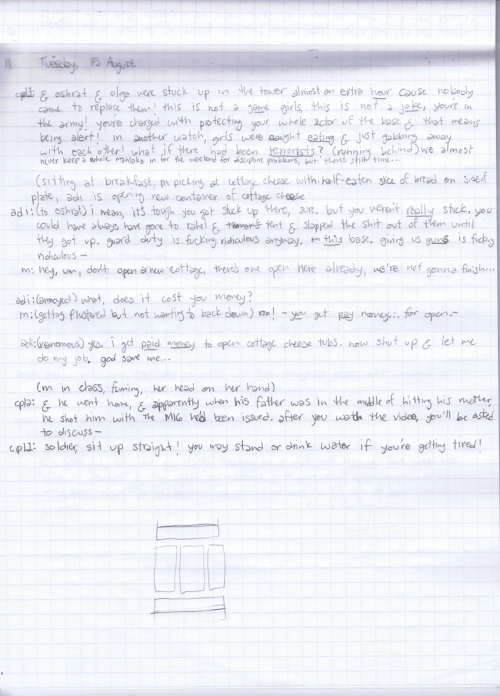 Tuesday, 15 August
cpl1: & oshrat & olga were stuck up in the tower almost an extra hour cause nobody
came to replace them! this is not a game girls, this is not a joke, you're in
the army! you're charged with protecting your whole sector of the base & that means
being alert! in another watch, girls were caught eating & just gabbing away
with each other! what if there had been terrorists? (running behind) we almost
never keep a whole in for the weekend for discipline problems, but there's still time...
(sitting at breakfast, m picking at cottage cheese with half-eaten slice of bread on side of
plate, adi is opening new container of cottage cheese
adi: (to oshrat) i mean, it's tough you got stuck up there, sure. but you weren't really stuck. you
could have always have gone to & tent & slapped the shit out of them until
they got up. guard duty is fucking ridiculous anyway. m this base. giving us guns is fucking
ridiculous -
m: hey, um, don't open a new cottage, there's one open here already, we're not gonna finish...
adi: (annoyed) what, does it cost you money?
m: (getting flustered but not wanting to back down) no! - you get pay money... for open.-
adi: (venomous) yes. i get paid money to open cottage cheese tubs. now shut up & let me
do my job. god save me...
(m in class, fuming, her head on her hand)
cpl2: & he went home, & apparently when his father was in the middle of hitting his mother,
he shot him with the M16 he'd been issued. after you watch the video, you'll be asked
to discuss -
cpl1: soldier, sit up straight! you may stand or drink water if you're getting tired!